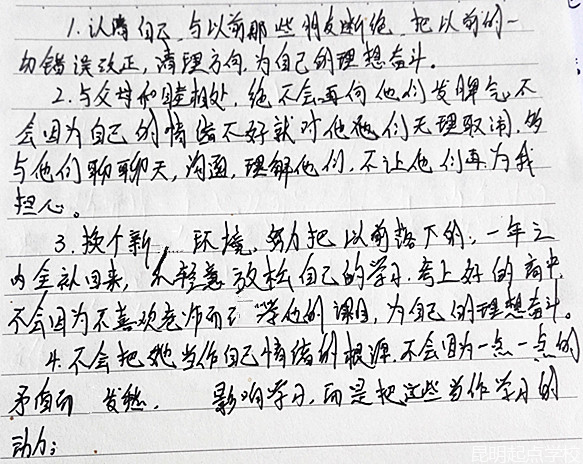 1.认清自己,与以前那些朋友断绝,把以前的一
切错误改正,清理方向,为自己的理想奋斗。
2.与父母和睦相处,绝不会再向他们发脾气,不
会因为自己的情绪不好就对他们无理取闹,多
与他们聊聊天,沟通,理解他们,不让他们再为我
担心。
3.换个新 环境,努力把以前落下的,一年之
内全补回来,不轻意放松自己的学习,考上好的高中,
不会因为不喜欢老师而不学他的课目,为自己的理想奋斗。
4.不会把她当作自己情绪的根源,不会因为一点一点的
矛盾而发愁, 影响学习,而是把这些当作学习的
动力;
昆明起点学校